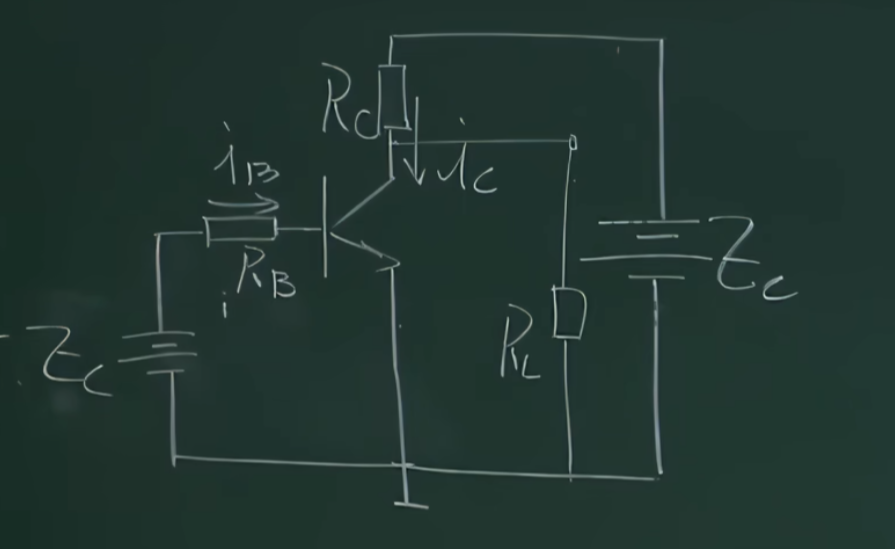 R_C
i_B
i_C
R_B
E_C
R_L
E_C